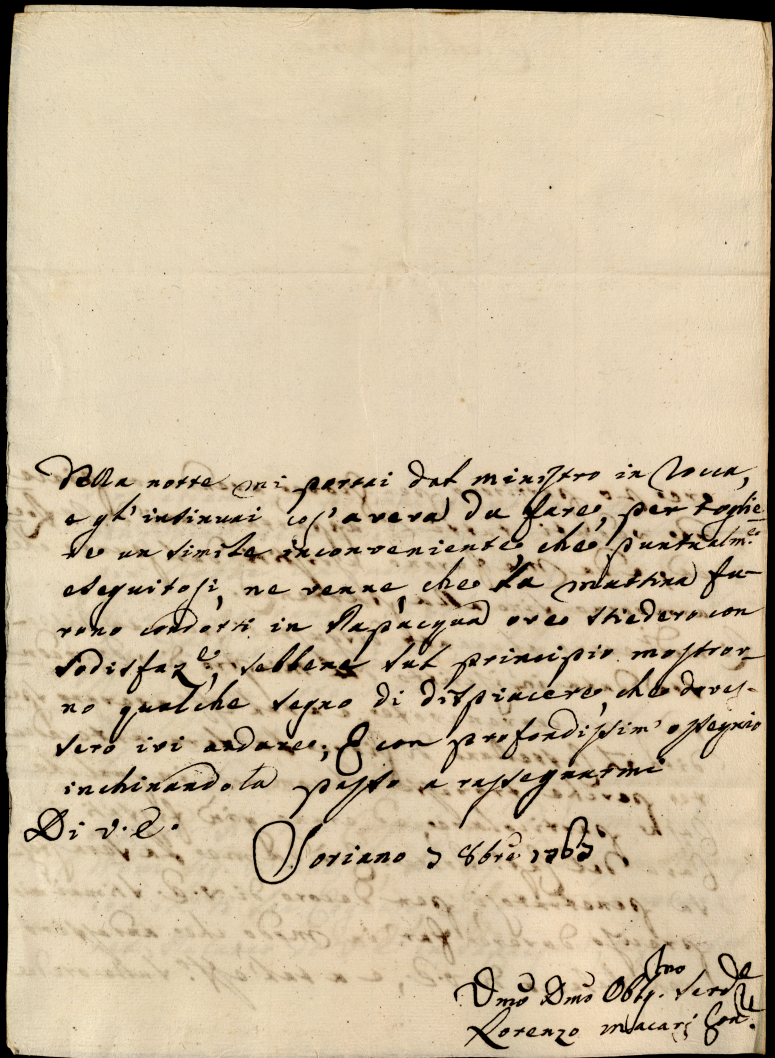 Nella notte mi portai dal ministro in Rocca,
e gl'insinuai cos'aveva da fare, per toglie-
re un simile inconveniente, che puntualm.e
eseguitosi, ne venne, che la mattina fu-
rono condotti in Papacqua ove stiedero con
sodisfaz.e, sebbene sul principio mostror-
no qualche segno di dispiacere, che doves-
sero ivi andare; E con profondissim'ossequio
inchinandola passo a rassegnarmi
Di V. E.
Soriano 7 8bre 1767
Dmo Dmo Obbl.mo Serv.e
Lorenzo Macarj